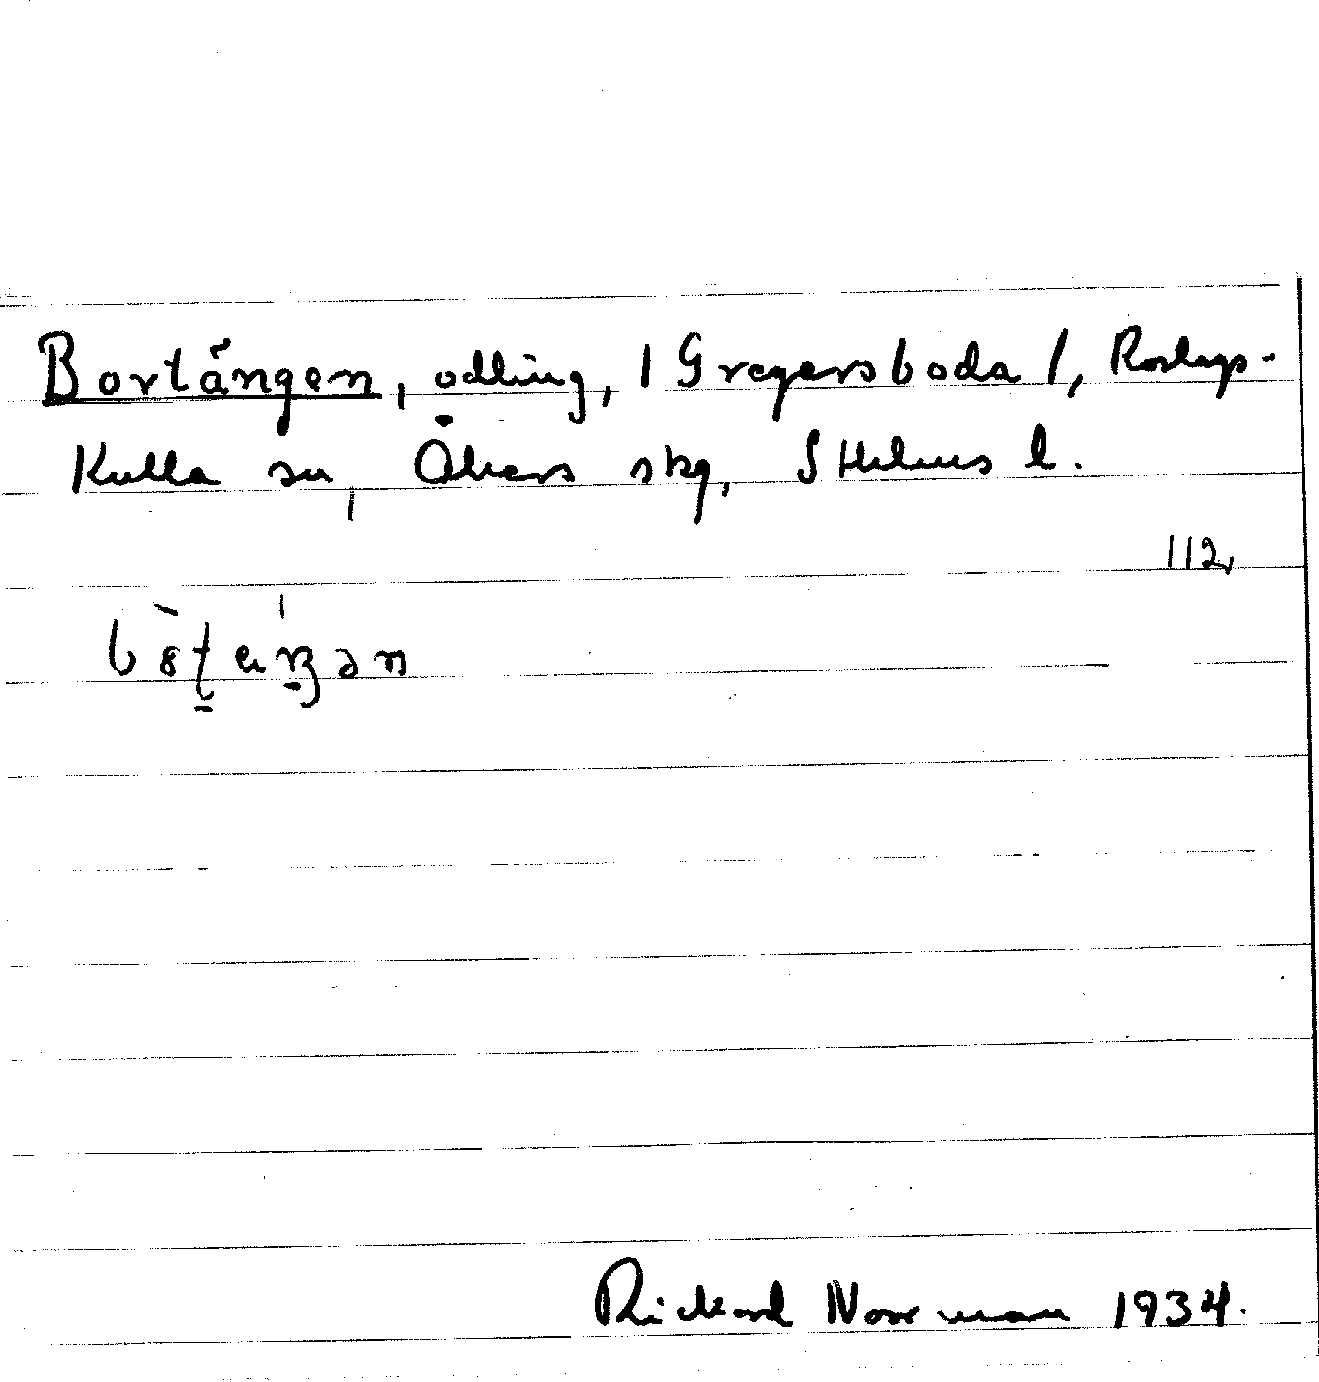 Bortängen, odling, / Gregersboda /, Roslags-
Kulla sn, Åkers skg, Sthlms l.
112,
Rickard Norrman 1934.